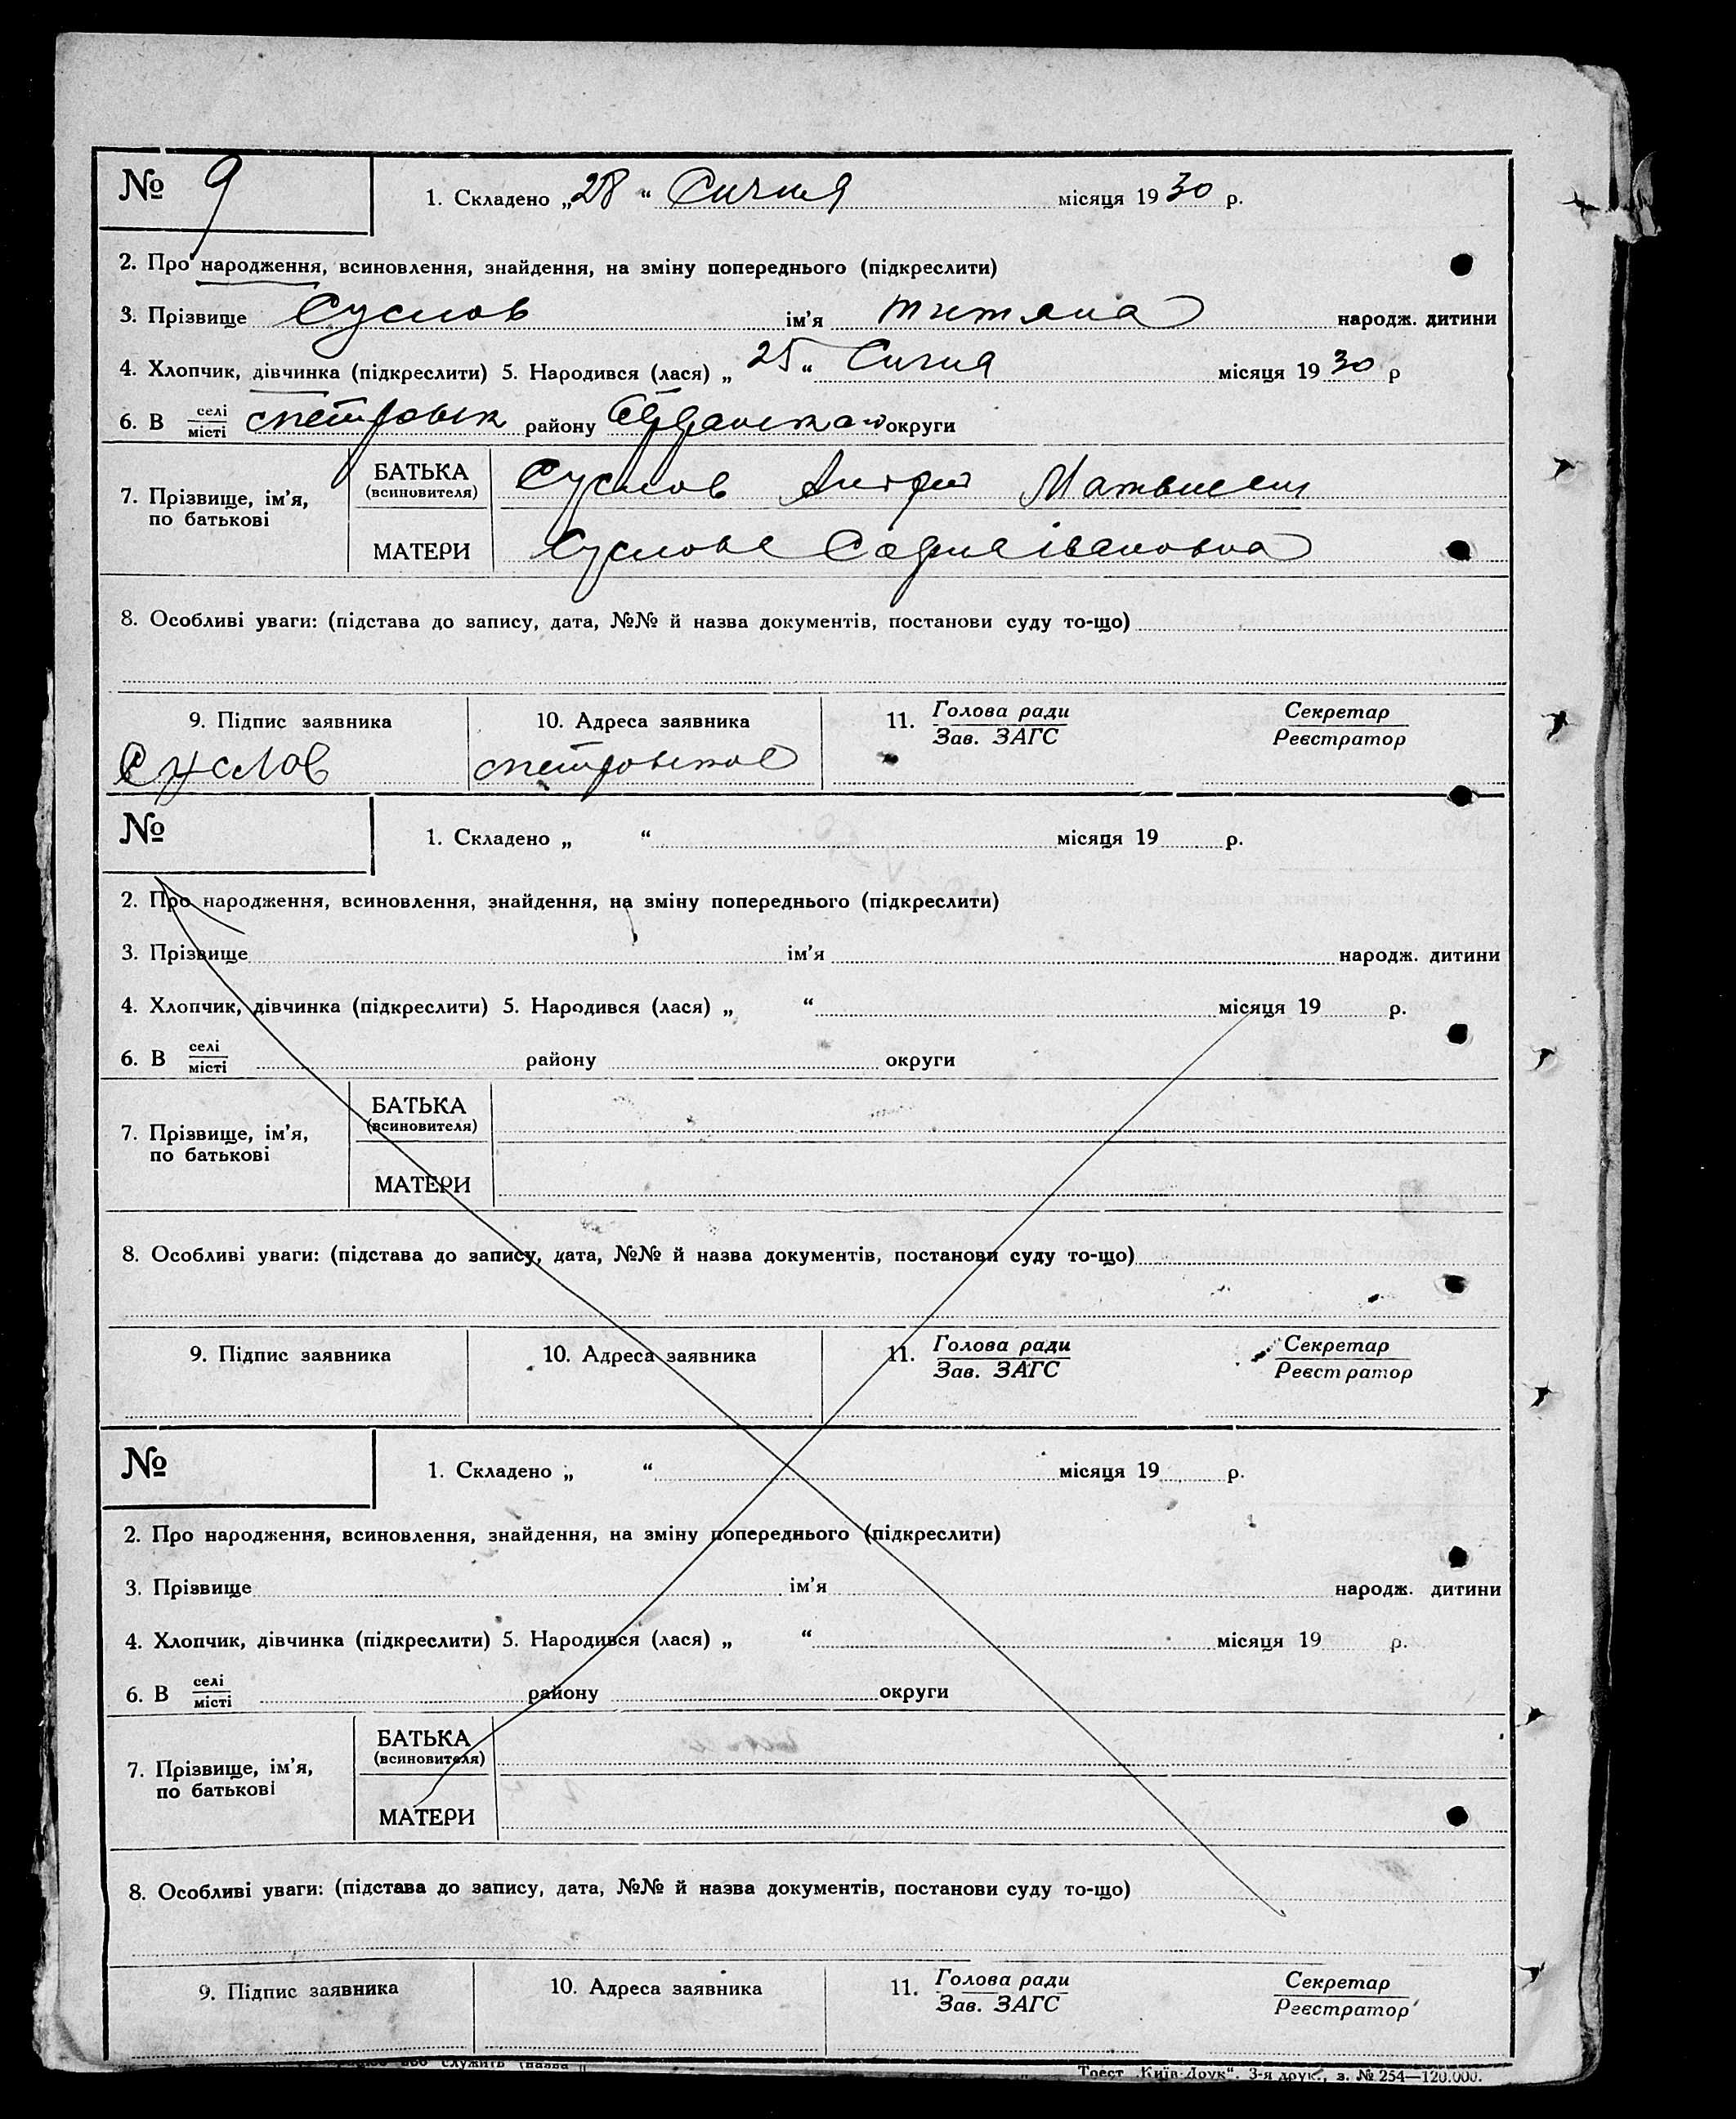 № 9
1. Складено „28“ Сичня місяця 1930 р.
2. Про народження, всиновлення, знайдення, на зміну попереднього (підкреслити)
3. Прізвище Суслов ім’я Титяна народж. дитини
4. Хлопчик, дівчинка (підкреслити) 5. Народився (лася) „25“ Сичня місяця 1930 р
6. В селі
місті району округи
7. Прізвище, ім’я,
по батькові
БАТЬКА
(всиновителя)
Суслов Андрій
МАТЕРИ
Суслова Івановна
8. Особливі уваги: (підстава до запису, дата, №№ й назва документів, постанови суду то-що)
9. Підпис заявника 10. Адреса заявника 11. Голова ради Секретар
Зав. ЗАГС Реєстратор
Суслов
№
1. Складено „ “ місяця 19 р.
2. Про народження, всиновлення, знайдення, на зміну попереднього (підкреслити)
3. Прізвище ім’я народж. дитини
4. Хлопчик, дівчинка (підкреслити) 5. Народився (лася) „ “ місяця 19 р.
6. В селі
місті району округи
7. Прізвище, ім’я,
по батькові
БАТЬКА
(всиновителя)
МАТЕРИ
8. Особливі уваги: (підстава до запису, дата, №№ й назва документів, постанови суду то-що)
9. Підпис заявника 10. Адреса заявника 11. Голова ради Секретар
Зав. ЗАГС Реєстратор
№
1. Складено „ “ місяця 19 р.
2. Про народження, всиновлення, знайдення, на зміну попереднього (підкреслити)
3. Прізвище ім’я народж. дитини
4. Хлопчик, дівчинка (підкреслити) 5. Народився (лася) „ “ місяця 19 р.
6. В селі
місті району округи
7. Прізвище, ім’я,
по батькові
БАТЬКА
(всиновителя)
МАТЕРИ
8. Особливі уваги: (підстава до запису, дата, №№ й назва документів, постанови суду то-що)
9. Підпис заявника 10. Адреса заявника 11. Голова ради Секретар
Зав. ЗАГС Реєстратор
служить (назва
Трест „Київ-Друк“. 3-я друк., з. № 254—120.000.